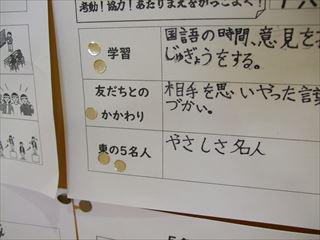 考動！協力！あたりまえをかっこよく！
学習
国語の時間、意見を
じゅぎょうをする。
友だちとの
かかわり
相手を思いやった言葉
づかい。
東の5名人
やさしさ名人